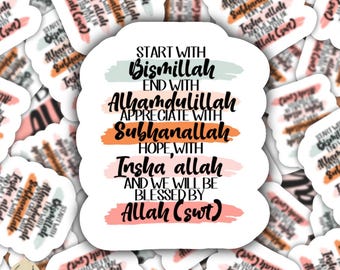 START WITH
Bismillah
END WITH
Alhamdulillah
APPRECIATE WITH
Subhanallah
HOPE WITH
Insha allah
AND WE WILL BE
BLESSED BY
Allah (swt)